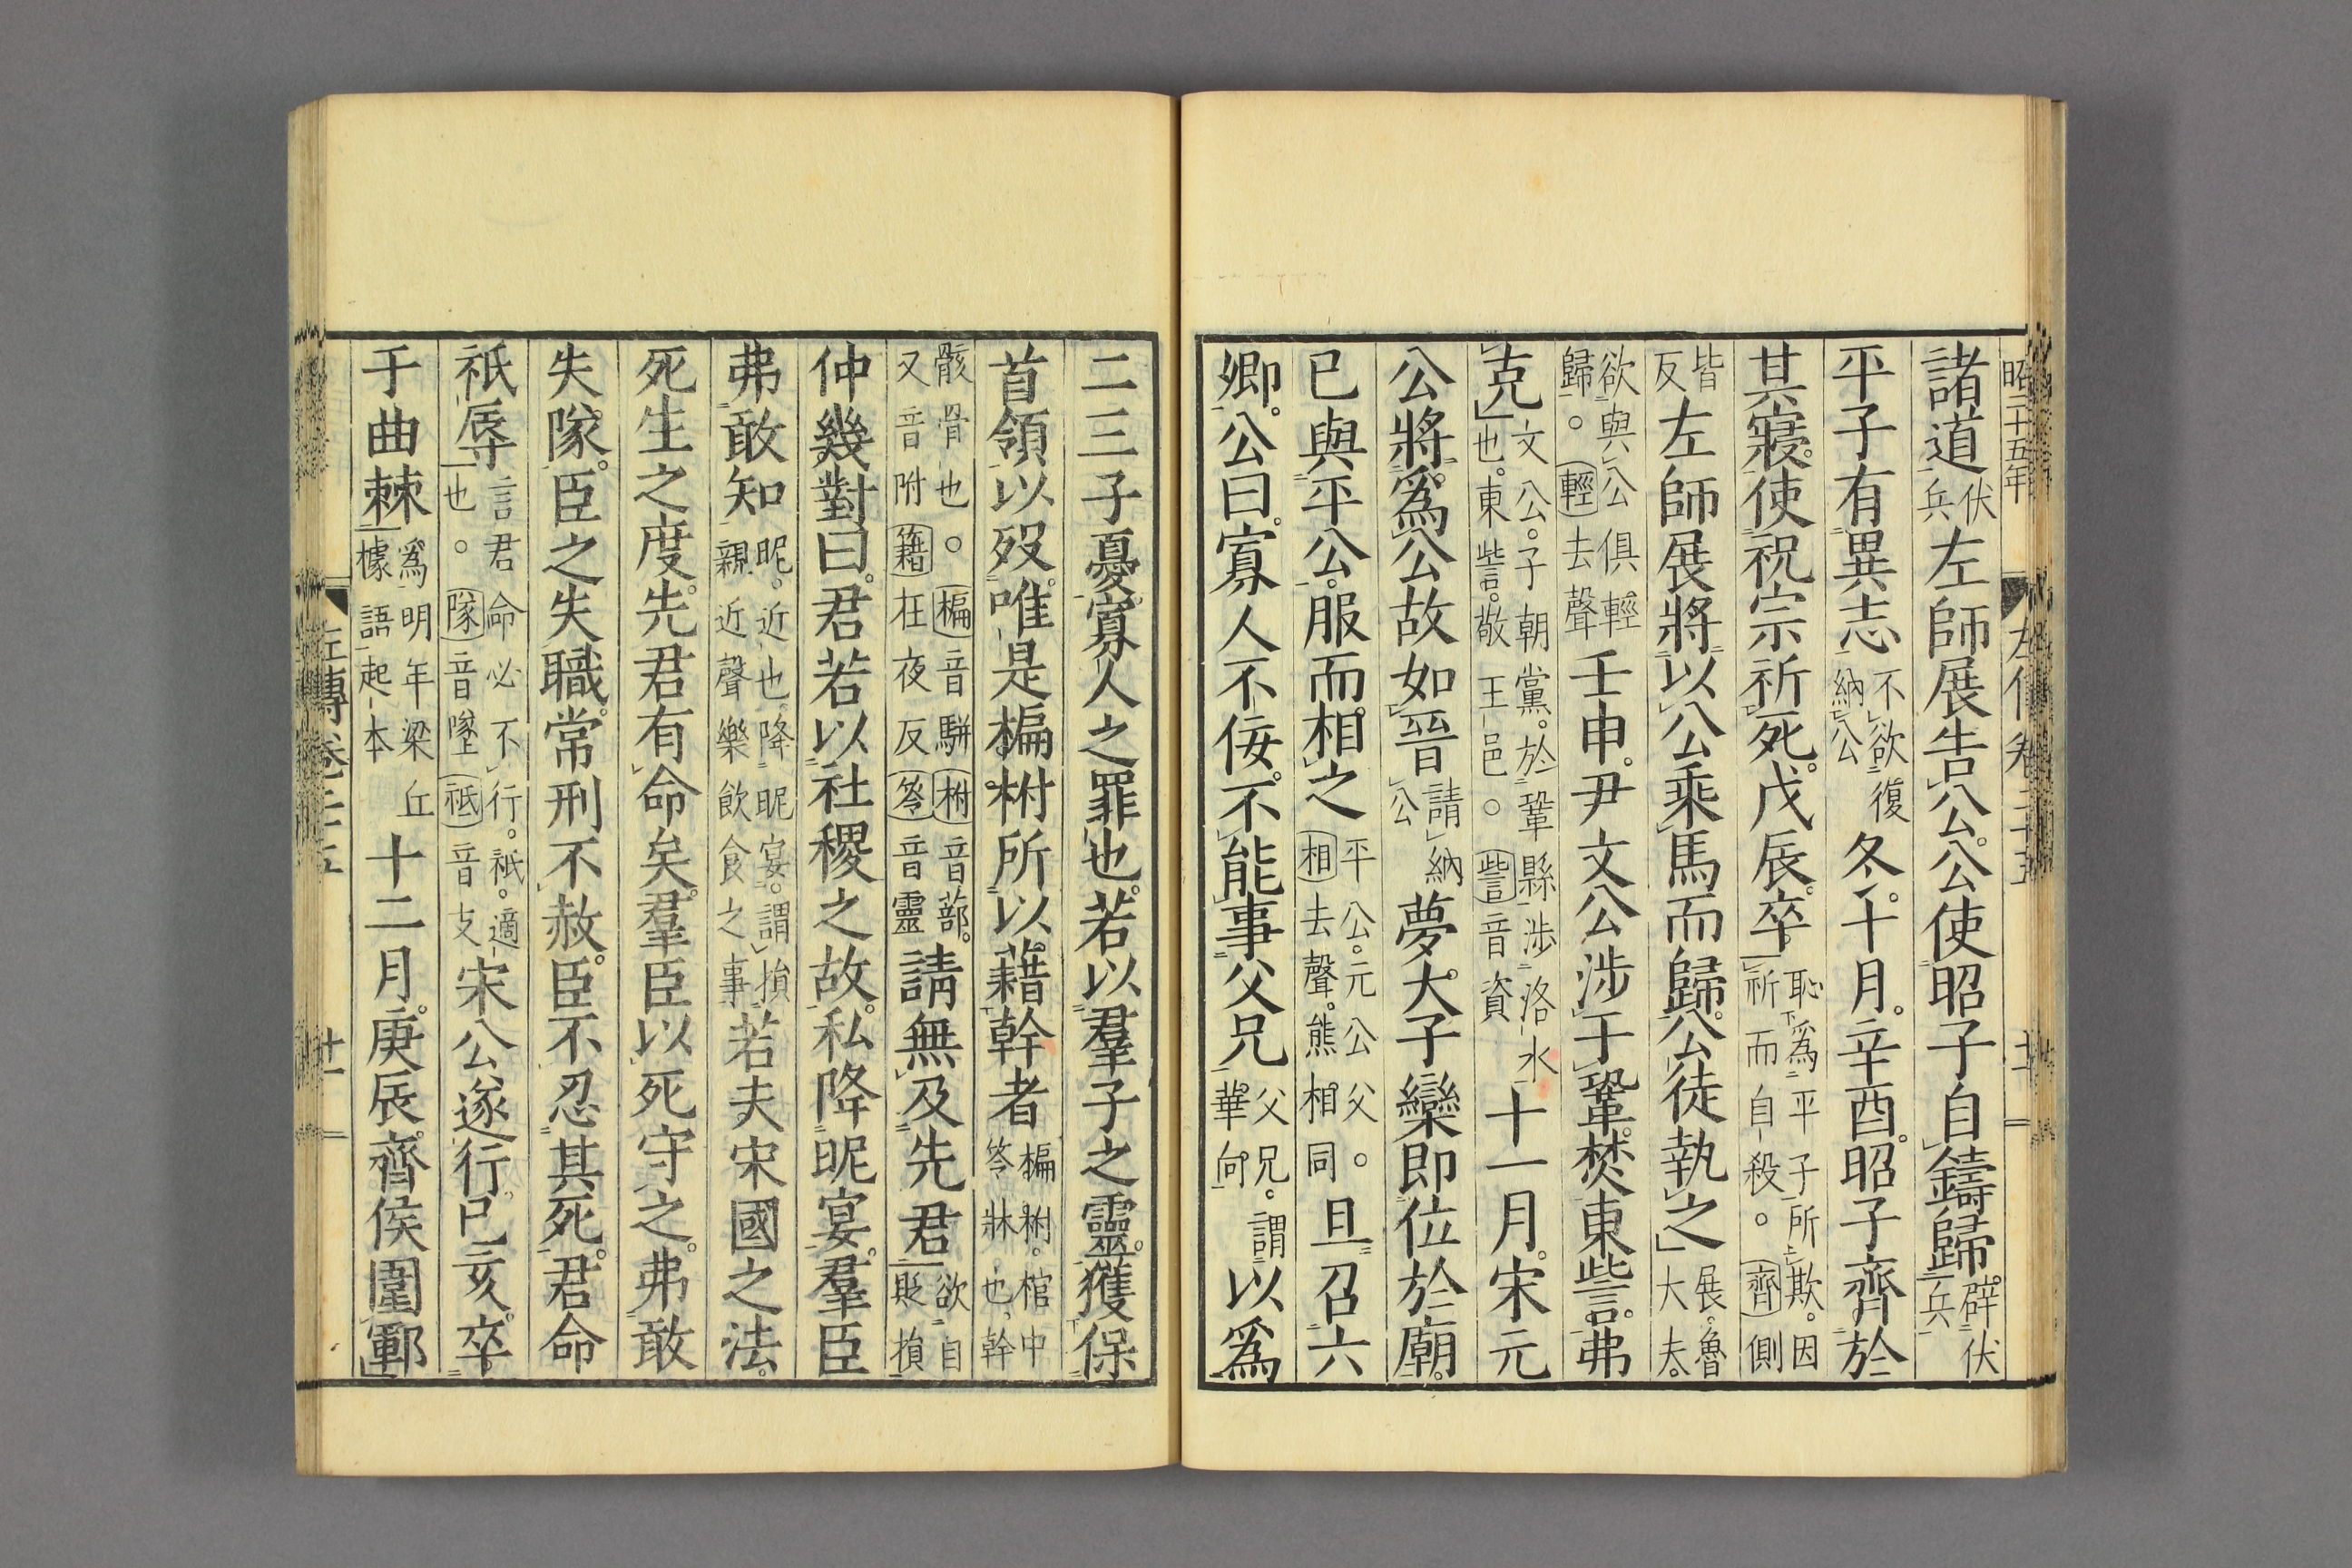 昭二十五年
諸道伏兵左師展告公公使昭子自鑄歸辟伏兵
平子有異志不欲復納公冬十月辛酉昭子齊於
其寢使祝宗祈死戊辰卒恥爲平子所欺因祈而自殺○齊側
皆反左師展將以公乘馬而歸公徒執之展魯大夫
欲與公俱輕歸○輕去聲壬申尹文公涉于鞏焚東訾弗
克文公子朝黨於鞏縣涉洛水也東訾敬王邑○訾音資十一月宋元
公將爲公故如晉請納公夢大子欒即位於廟
已與平公服而相之平公元公父○相去聲熊相同旦召六
卿公曰寡人不佞不能事父兄父兄謂華向以爲
二三子憂寡人之罪也若以羣子之靈獲保
首領以歿唯是楄柎所以藉幹者楄柎棺中笭牀也幹
骸骨也○楄音駢柎音蔀又音附藉在夜反笭音靈請無及先君欲自貶損
仲幾對曰君若以社稷之故私降昵宴羣臣
弗敢知昵近也降昵宴謂損親近聲樂飲食之事若夫宋國之法
死生之度先君有命矣羣臣以死守之弗敢
失隊臣之失職常刑不赦臣不忍其死君命
祇辱言君命必不行祇適也○隊音墜祇音支宋公遂行己亥卒
于曲棘爲明年梁丘據語起本十二月庚辰齊侯圍鄆